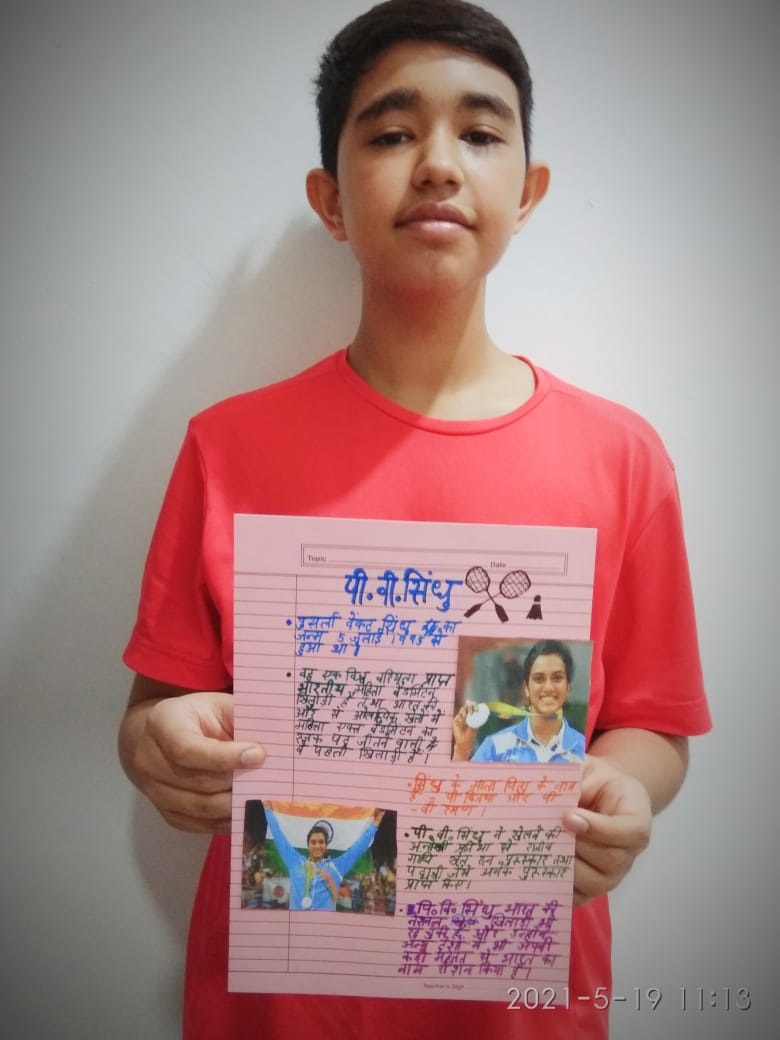 Topic
Date
पी.वी.सिंधु
• पुसर्ला वेंकट सिंधु का
जन्म 5 जुलाई 1995 को
हुआ था।
• वह एक विश्व वरियता प्राप्त
भारतीय महिला बैडमिंटन
खिलाड़ी हैं तथा भारत की
ओर से ओलंपिक खेलों में
महिला एकल बैडमिंटन का
रजक पद जीतने वाली में
वे पहली खिलाड़ी हैं।
• सिंधु के माता पिता के नाम
है - पी विजया और पी
- वी रमण।
• पी वी. सिंधु ने खेलने की
अनोखी प्रतिभा से राजीव
गांधी खेल रत्न पुरूस्कार तथा
पद्मश्री जैसे अनेक पुरूस्कार
प्राप्त किए।
• पि. वि. सिंधु भारत की
नेशनल खिलाड़ी भी
रह चुकी है. और उन्होंने
अन्य देशों में भी अपनी
कड़ी मेहनत से भारत का
नाम रोशन किया है।
Teacher's Sign
2021-5-19 11:13